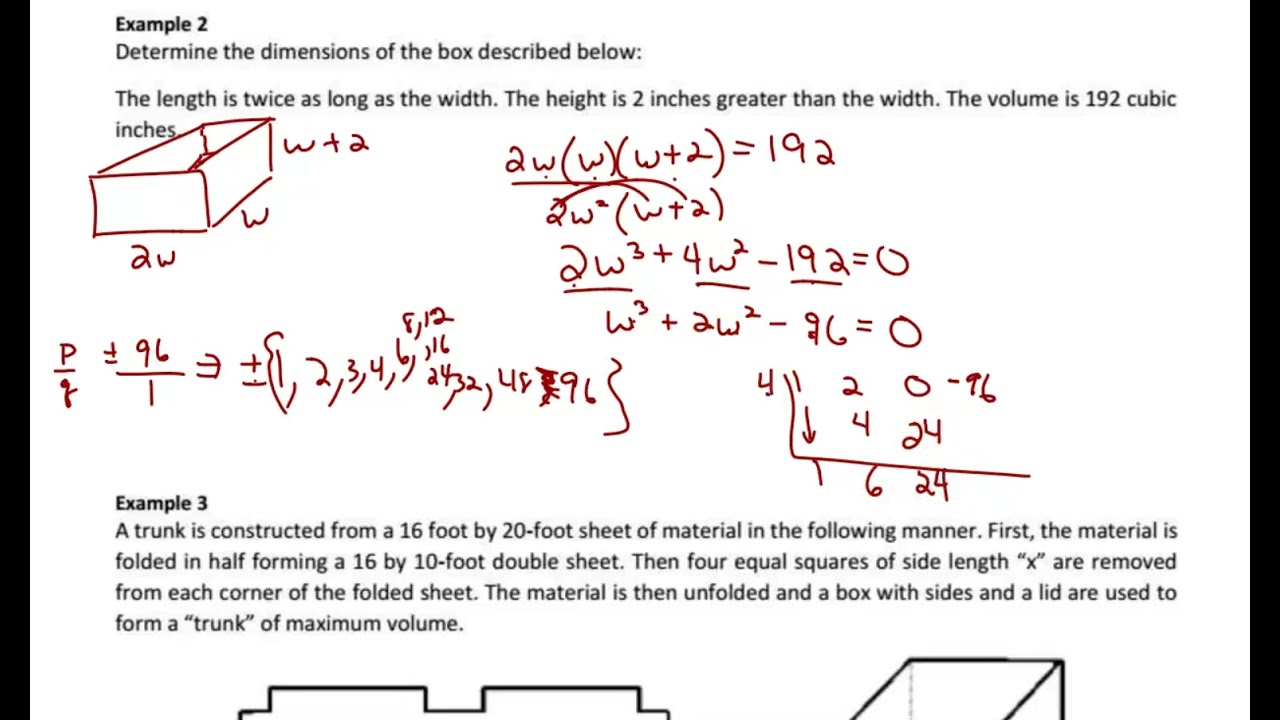 Example 2
Determine the dimensions of the box described below:
The length is twice as long as the width. The height is 2 inches greater than the width. The volume is 192 cubic
inches.
w + 2
w
2w
2w(w)(w+2) = 192
2w²(w+2)
2w³ + 4w² - 192 = 0
w³ + 2w² - 96 = 0
p/q ± 96/1 ⇒ ± {1, 2, 3, 4, 6, 8, 12, 16, 24, 32, 48, 96}
4 1 2 0 -96
4 24
1 6 24
Example 3
A trunk is constructed from a 16 foot by 20-foot sheet of material in the following manner. First, the material is
folded in half forming a 16 by 10-foot double sheet. Then four equal squares of side length “x” are removed
from each corner of the folded sheet. The material is then unfolded and a box with sides and a lid are used to
form a “trunk” of maximum volume.